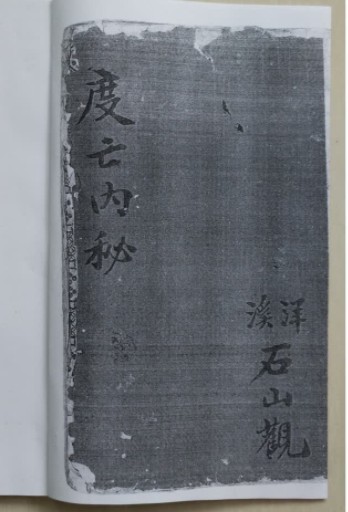 度亡內秘
洋溪
石山觀